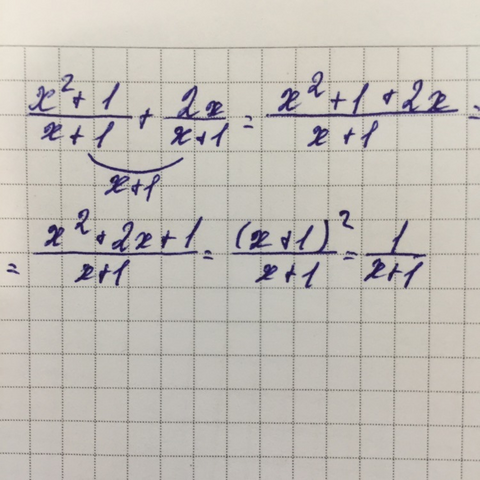 (x²+1)/(x+1) + 2x/(x+1) = (x²+1+2x)/(x+1) =
x+1
= (x²+2x+1)/(x+1) = (x+1)²/(x+1) = 1/(x+1)